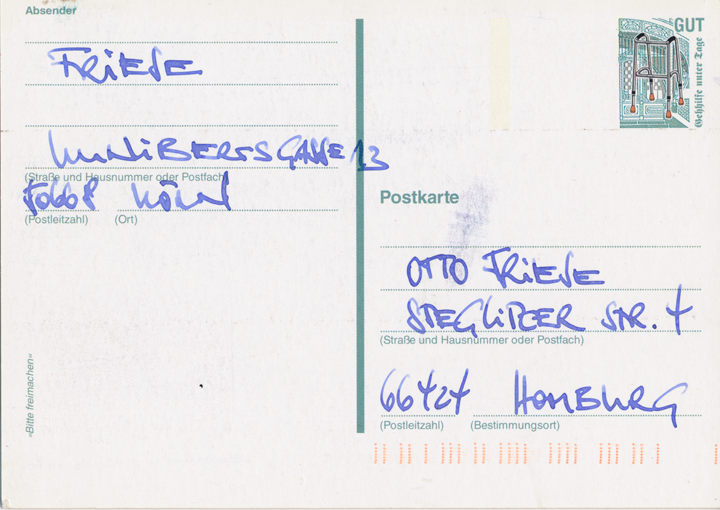 Absender
FRIESE
KUNIBERTSGASSE 13
(Straße und Hausnummer oder Postfach)
50668 KÖLN
(Postleitzahl) (Ort)
»Bitte freimachen«
GUT
Gehhilfe unter Tage
Postkarte
OTTO FRIESE
STEGLITZER STR. 4
(Straße und Hausnummer oder Postfach)
66424 HOMBURG
(Postleitzahl) (Bestimmungsort)